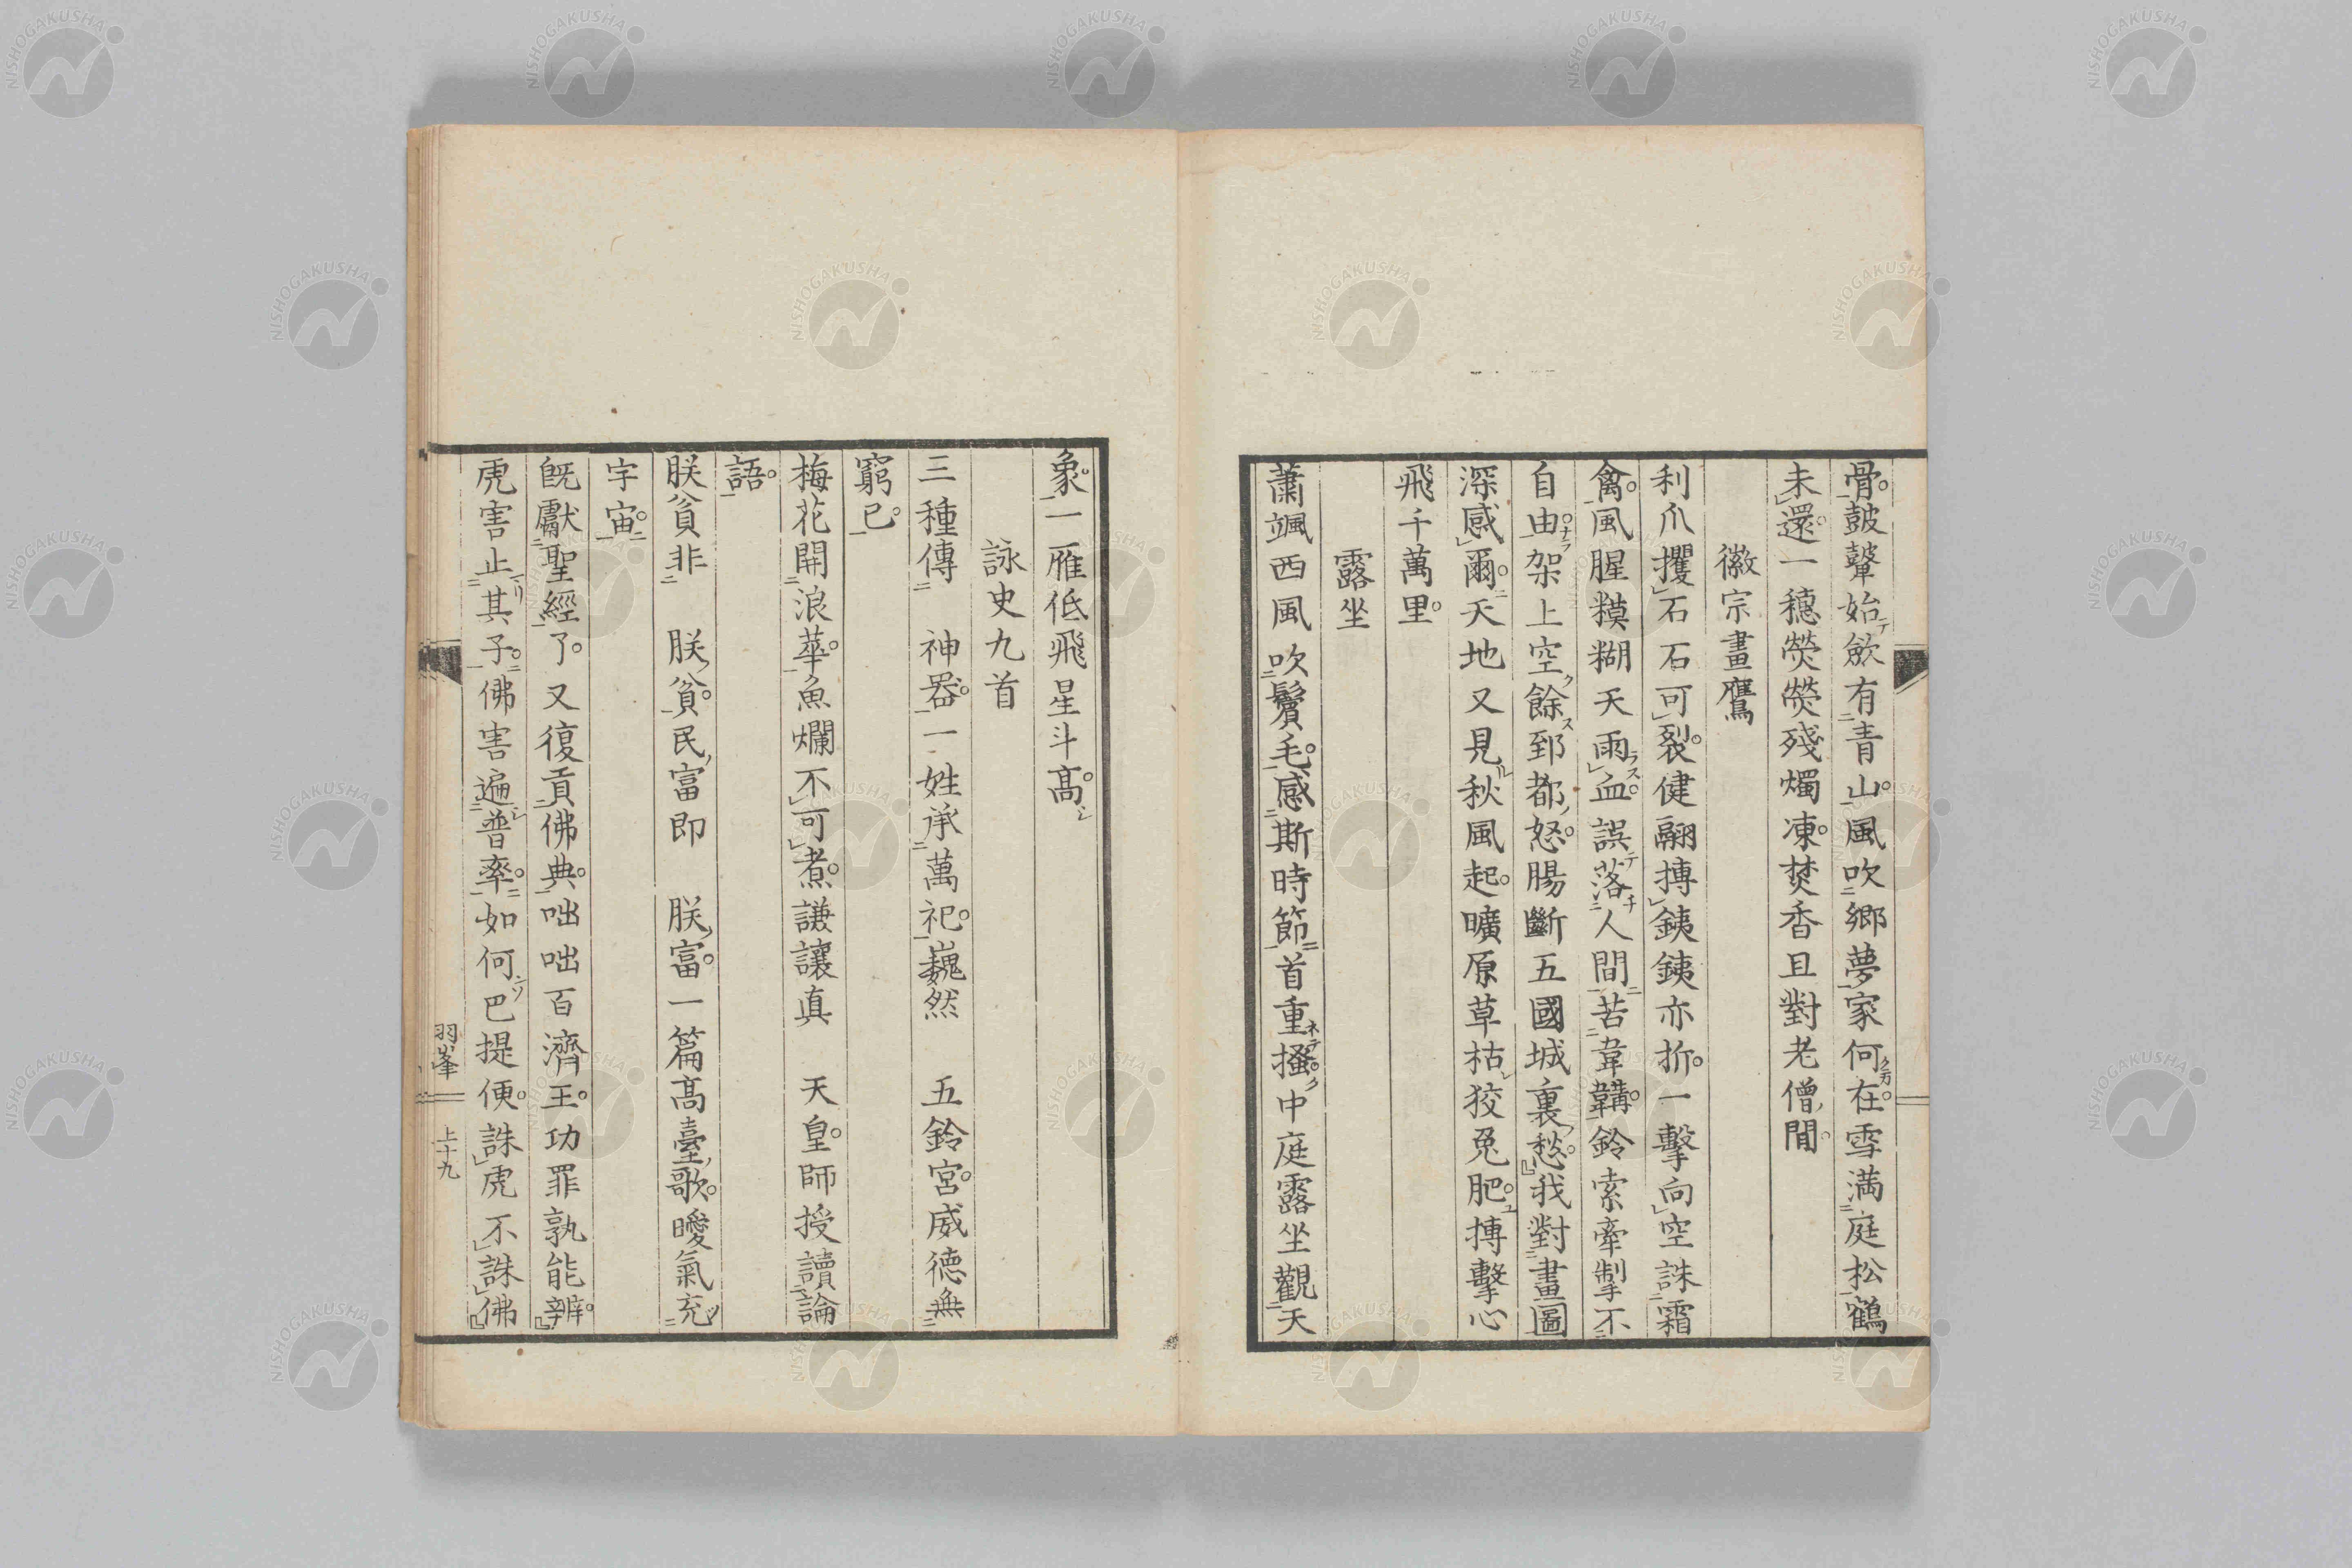 骨。皷鼙始歛有青山。風吹鄉夢家何在。雪滿庭松鶴
未還。一穗熒熒殘燭凍。焚香且對老僧閒。
徽宗畫鷹
利爪攫石石可裂。健翮搏銕銕亦折。一擊向空誅霜
禽。風腥糢糊天雨血。誤落人間苦韋韝。鈴索牽掣不
自由。架上空餘郅都怒。腸斷五國城裏愁。我對畫圖
深感爾。天地又見秋風起。曠原草枯狡兔肥。搏擊心
飛千萬里。
露坐
蕭颯西風吹鬢毛。感斯時節首重搔。中庭露坐觀天
象。一雁低飛星斗高。
詠史九首
三種傳 神器。一姓承萬祀。巍然 五鈴宮。威德無
窮已。
梅花開浪華。魚爛不可煮。謙讓真 天皇。師授讀論
語。
朕貧非 朕貧。民富即 朕富。一篇高臺歌。曖氣充
宇宙。
既獻聖經了。又復貢佛典。咄咄百濟王。功罪孰能辨。
虎害止其子。佛害遍普率。如何巴提便。誅虎不誅佛
羽峯
上十九
NISHOGAKUSHA